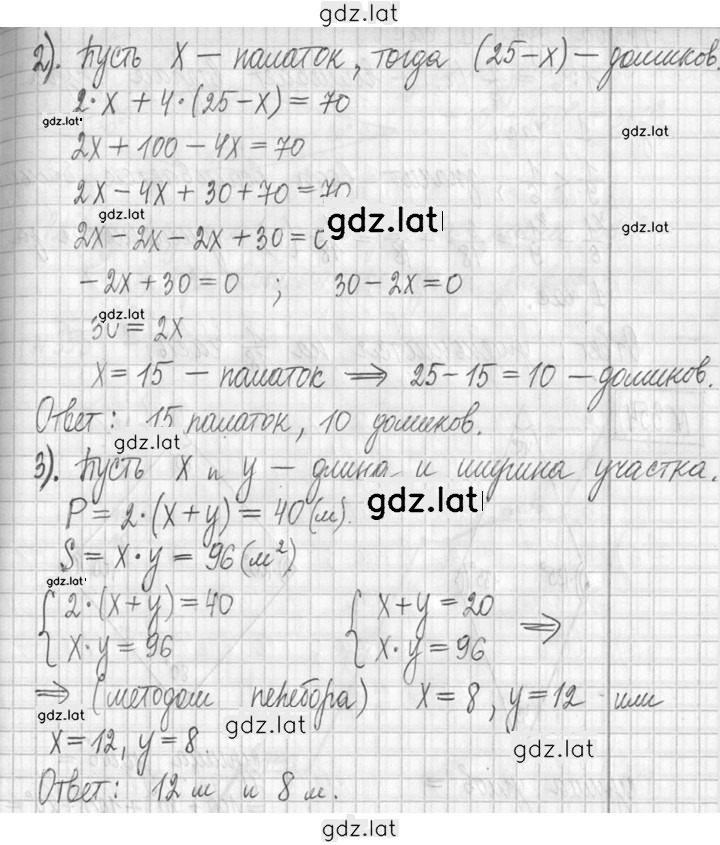 gdz.lat
2). Пусть x – палаток, тогда (25-x) – домиков.
2·x + 4·(25-x) = 70
gdz.lat
gdz.lat
2x + 100 - 4x = 70
2x - 4x + 30 + 70 = 70
gdz.lat
gdz.lat
gdz.lat
2x - 2x - 2x + 30 = 0
-2x + 30 = 0 ; 30 - 2x = 0
gdz.lat
30 = 2x
x = 15 – палаток ⟹ 25-15 = 10 – домиков.
Ответ: 15 палаток, 10 домиков.
gdz.lat
3). Пусть x и y – длина и ширина участка.
gdz.lat
P = 2·(x+y) = 40 (м).
S = x·y = 96 (м²)
gdz.lat
{ 2·(x+y) = 40 { x+y = 20 ⟹
x·y = 96 x·y = 96
⟹ (методом перебора) x = 8, y = 12 или
gdz.lat
gdz.lat
gdz.lat
x = 12, y = 8.
Ответ: 12 м и 8 м.
gdz.lat